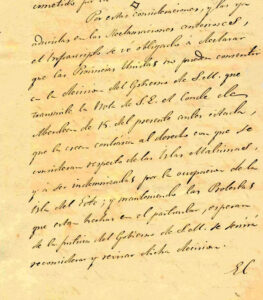 cometido por
Por estas consideraciones, y las ya
aducidas en las reclamaciones anteriores,
el Infrascripto se ve obligado á declarar
que las Provincias Unidas no pueden consentir
en la decision del Gobierno de S.M. que
transmite la Nota de S.E. el Conde de
Aberdeen de 15 del presente
que la creen contraria al derecho con que se
consideran respecto de las Islas Malvinas,
y á ser indemnizadas por la ocupacion de la
Isla del Este; y manteniendo las Protestas
que estan hechas en el particular, esperan
de la justicia del Gobierno de S.M. se servirá
reconsiderar y revisar dicha decision.
El